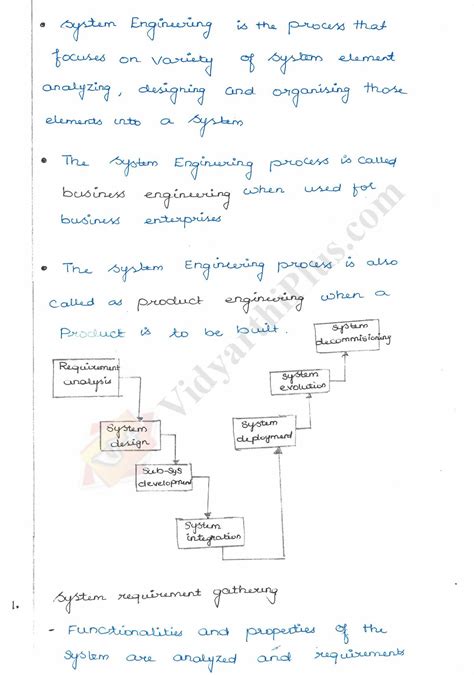 • System Engineering is the process that
focuses on variety of system element
analyzing, designing and organising those
elements into a system
• The system Engineering process is called
business engineering when used for
business enterprises
• The system Engineering process is also
called as product engineering when a
Product is to be built.
System
decommisioning
Requirement
analysis
System
evolution
System
design
System
deployment
Sub-sys
development
System
integration
VidyarthiPlus.com
1. System requirement gathering
- Functionalities and properties of the
system are analyzed and requirements